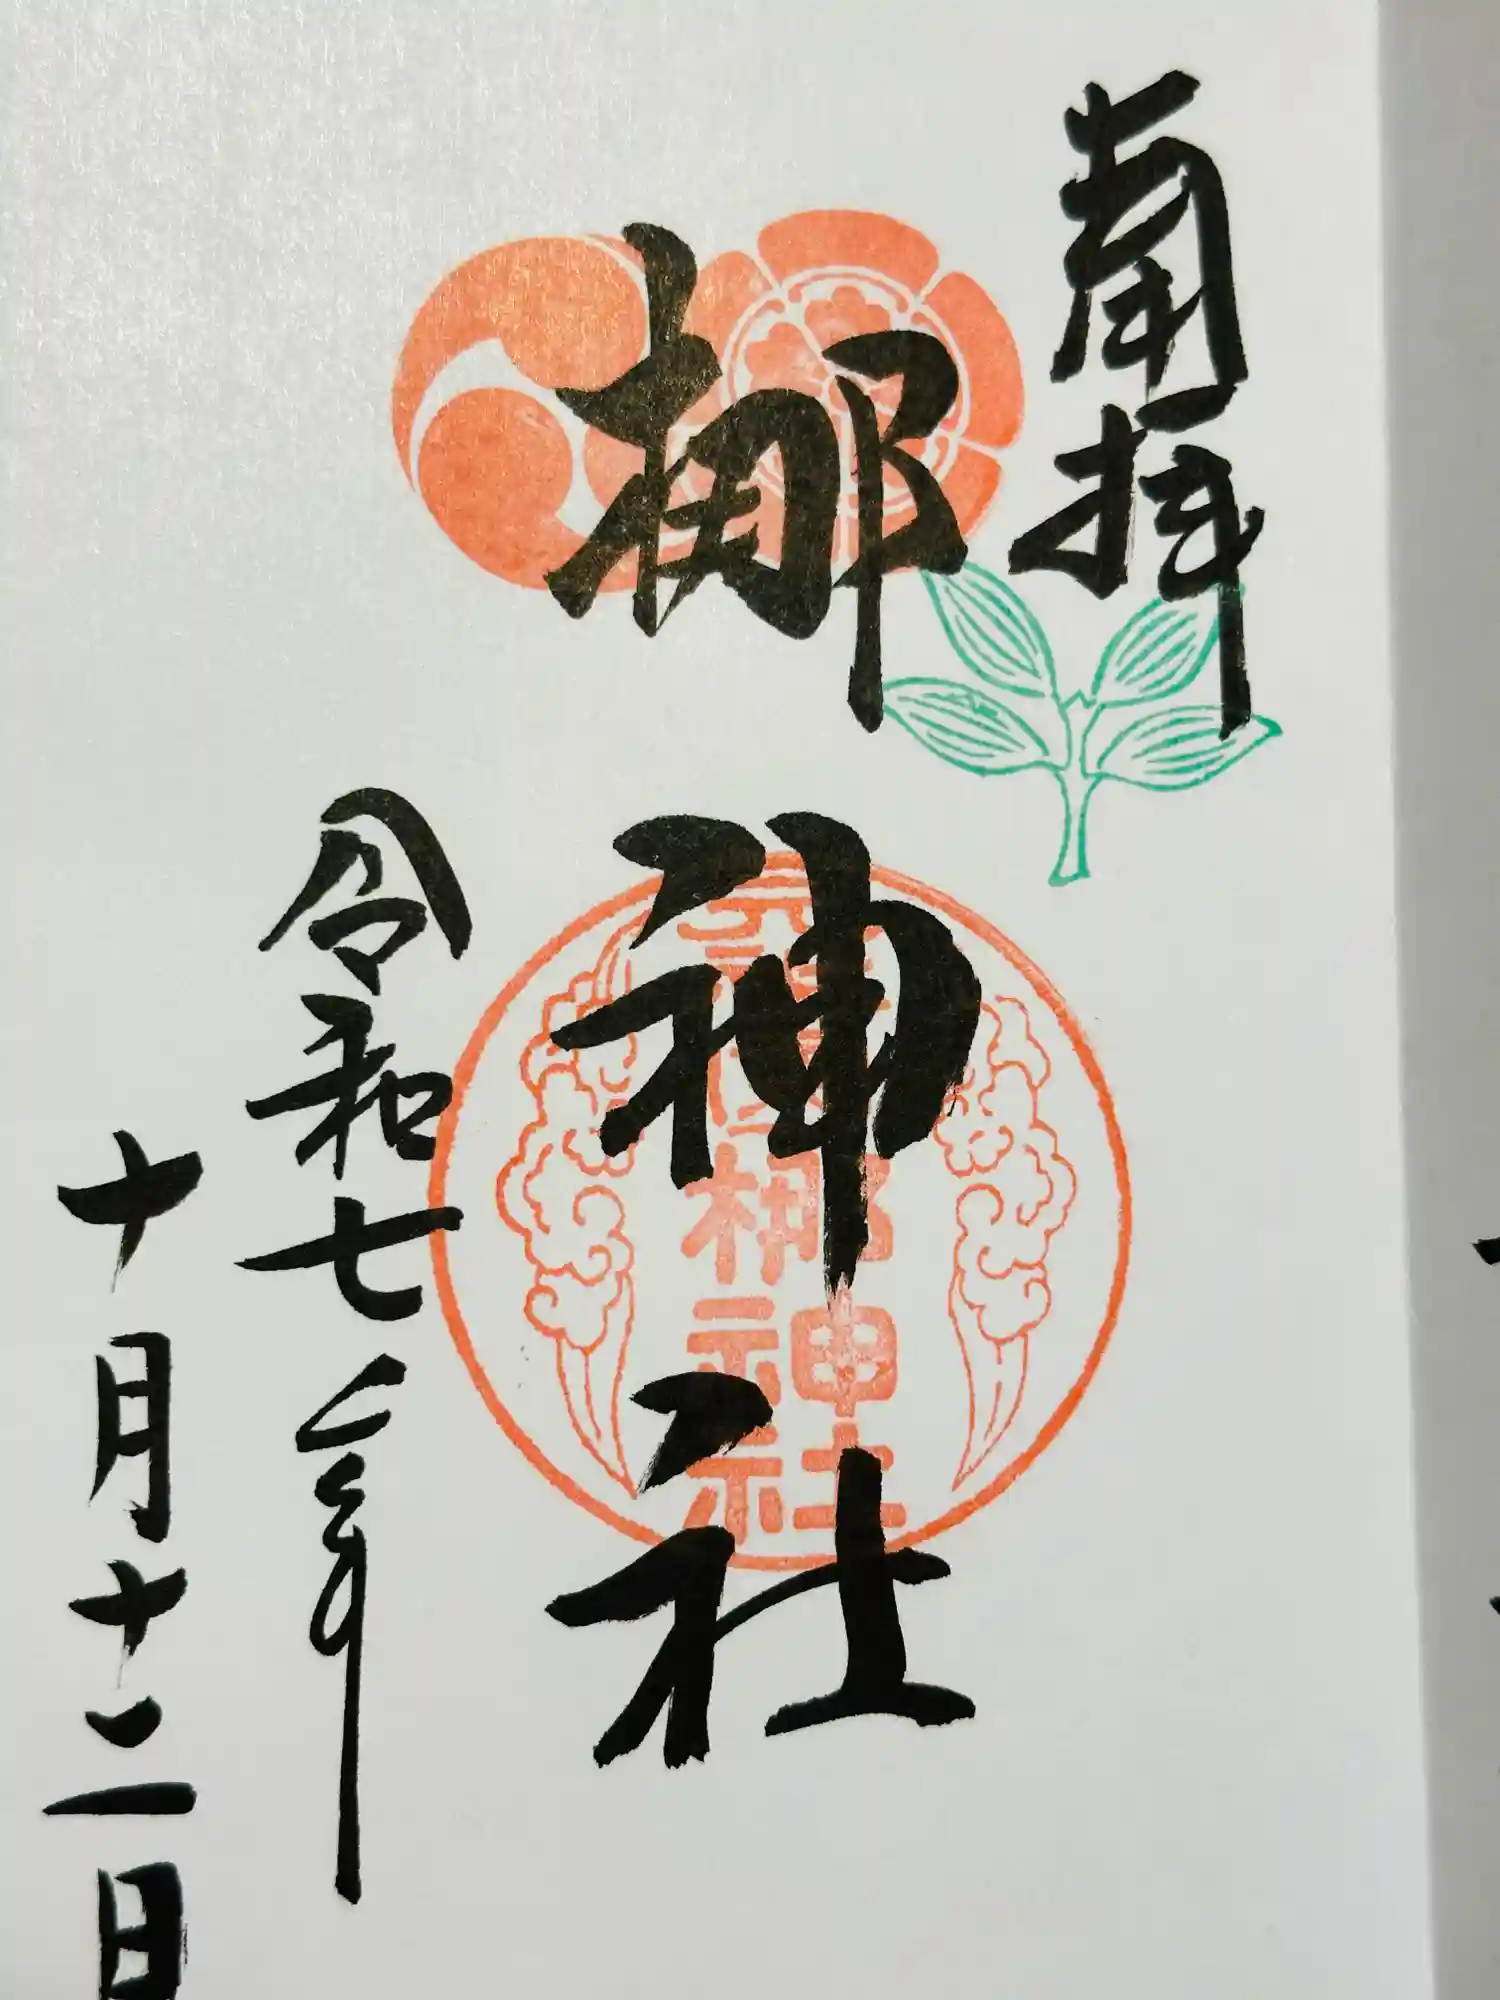 奉拝
梛神社
元祇園梛神社
令和七年
十月十二日